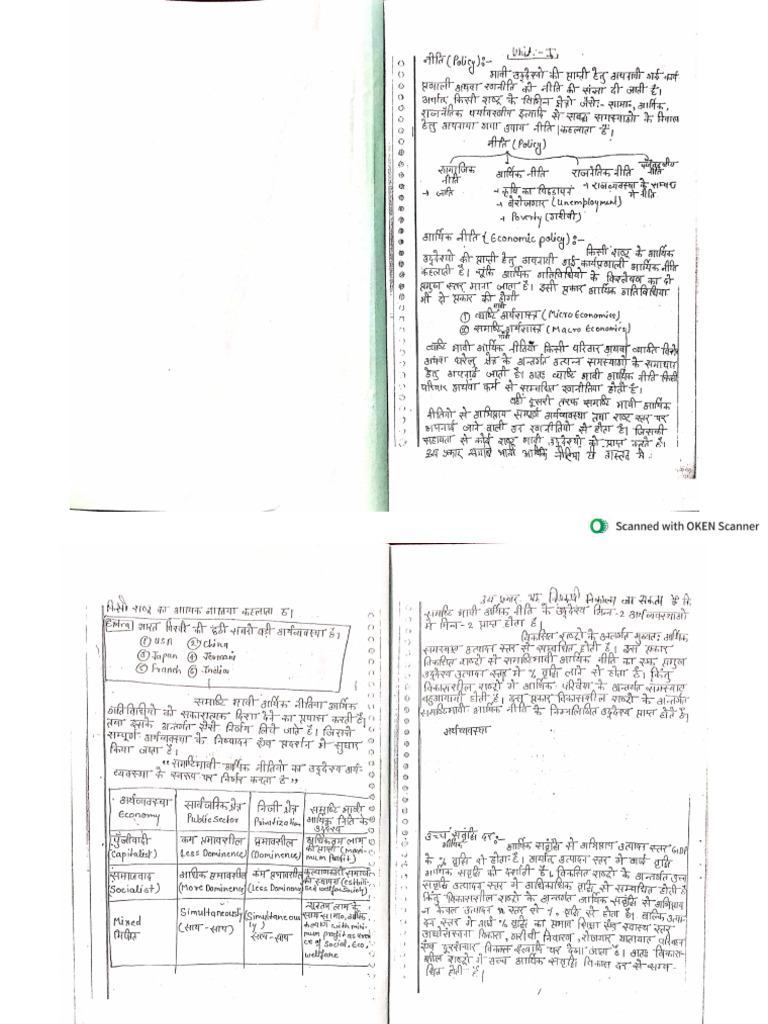 Unit:- I
नीति (Policy):-
भावी उद्देश्यो की प्राप्ति हेतु अपनायी गई कार्य
प्रणाली अथवा रणनीति को नीति की संज्ञा दी जाती है।
अर्थात् किसी राष्ट्र के विभिन्न क्षेत्रो जैसे:- सामा०, आर्थिक,
राजनैतिक पर्यावरणीय इत्यादि से सम्बद्ध समस्याओ के निदान
हेतु अपनाया गया उपाय नीति कहलाता है।
नीति (Policy)
सामाजिक नीति आर्थिक नीति राजनैतिक नीति
→ जाति → कृषि का पिछडापन → राजव्यवस्था के सम्बन्ध मे नीति
→ बेरोजगार (Unemployment)
→ Poverty (गरीबी)
आर्थिक नीति (Economic policy):-
किसी राष्ट्र के आर्थिक
उद्देश्यो की प्राप्ति हेतु अपनायी गई कार्यप्रणाली आर्थिक नीति
कहलाती है। चूंकि आर्थिक गतिविधियो के विश्लेषण का दो
प्रमुख स्तर माना जाता है। इसी प्रकार आर्थिक गतिविधिया
भी दो प्रकार की होगी
① व्यष्टि अर्थशास्त्र (Micro Economics)
② समष्टि अर्थशास्त्र (Macro Economics)
व्यष्टि भावी आर्थिक नीतियाँ किसी परिवार अथवा व्यक्ति विशेष
अथवा घरेलु क्षेत्र के अन्तर्गत उत्पन्न समस्याओ के समाधान
हेतु अपनाई जाती है। अतः व्यष्टि भावी आर्थिक नीति किसी
परिवार अथवा फर्म से सम्बन्धित रणनीतिया होती है।
वही दूसरी तरफ समष्टि भावी आर्थिक
नीतियो से अभिप्राय सम्पूर्ण अर्थव्यवस्था तथा राष्ट्र स्तर पर
अपनाई जाने वाली उन रणनीतियो से होता है। जिसकी
सहायता से कोई राष्ट्र भावी उद्देश्यो को प्राप्त करते है।
इस प्रकार समष्टि भावी आर्थिक नीतिया ही वास्तव मे
Scanned with OKEN Scanner
किसी राष्ट्र का आर्थिक नीतिया कहलाता है।
Extra भारत विश्व की छठी सबसे बडी अर्थव्यवस्था है।
① USA ② China
③ Japan ④ Jermani
⑤ Franch ⑥ India
समष्टि भावी आर्थिक नीतिया आर्थिक
गतिविधियो को सकारात्मक दिशा देने का प्रयास करती है।
तथा इसके अन्तर्गत ऐसी निर्णय लिये जाते है। जिससे
सम्पूर्ण अर्थव्यवस्था के निष्पादन एंव प्रदर्शन मे सुधार
किया जाता है।
"समष्टिभावी आर्थिक नीतियो का उद्देश्य अर्थ-
व्यवस्था के स्वरूप पर निर्भर करता है"
अर्थव्यवस्था Economy सार्वजनिक क्षेत्र Public Sector निजी क्षेत्र Privatization समष्टि भावी आर्थिक निति के उद्देश्य
पूँजीवादी (Capitalist) कम प्रभावशील (Less Dominence) प्रभावशील (Dominence) अधिकतम लाभ की प्राप्ति (Maximum Profit)
समाजवाद (Socialist) अधिक प्रभावशील (More Dominence) कम प्रभावशील (Less Dominence)
Mixed मिश्रित Simultaneously (साथ-साथ) (Simultaneously) साथ-साथ
इस प्रकार यह निष्कर्ष निकाला जा सकता है कि
समष्टि भावी आर्थिक नीति के उद्देश्य भिन्न-2 अर्थव्यवस्थाओ
मे भिन्न-2 प्राप्त होता है।
विकसित राष्ट्रो के अन्तर्गत मुख्यतः आर्थिक
समस्याए उत्पादन स्तर से सम्बन्धित होती है। इस प्रकार
विकसित राष्ट्रो मे समष्टिभावी आर्थिक नीति का एक प्रमुख
उद्देश्य उत्पादन स्तर मे % वृद्धि लाने से होता है। किंतु
विकासशील राष्ट्रो मे आर्थिक परिवेश के अन्तर्गत समस्याए
बहुआयामी होती है। इसी प्रकार विकासशील राष्ट्रो के अन्तर्गत
समष्टिभावी आर्थिक नीति के निम्नलिखित उद्देश्य प्राप्त होते है।
अर्थव्यवस्था
उच्च आर्थिक संवृद्धि दर:-
आर्थिक संवृद्धि से अभिप्राय उत्पादन स्तर GDP
के % वृद्धि से होता है। अर्थात उत्पादन स्तर मे वृद्धि
आर्थिक संवृद्धि को दर्शाती है। विकसित राष्ट्रो के अन्तर्गत उच्च
संवृद्धि उत्पादन स्तर मे अधिकाधिक वृद्धि से सम्बन्धित होती है
किंतु विकासशील राष्ट्रो के अन्तर्गत आर्थिक संवृद्धि से अभिप्राय
न केवल उत्पादन स्तर से % वृद्धि से होता है। बल्कि उत्पा-
दन स्तर मे % वृद्धि का प्रभाव शिक्षा एंव स्वास्थ्य स्तर
विकास, गरीबी निवारण, रोजगार यातायात परिवहन
एंव दूरसंचार विकास इत्यादि पर देखा जाता है। अतः विकास-
शील राष्ट्रो मे उच्च आर्थिक संवृद्धि विकास दर से सम्ब-
न्धित होती है।